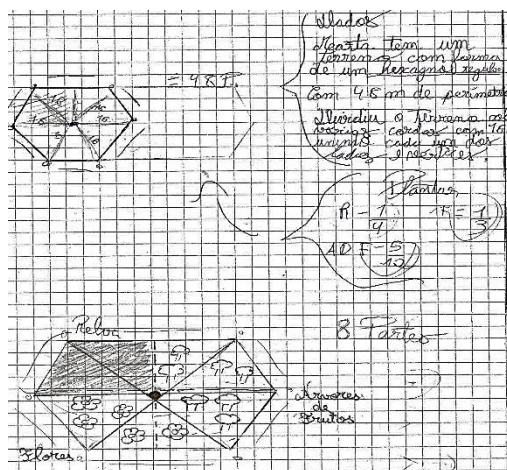 Dados
Marta tem um
terreno com forma
de um hexágono regular
Com 48 m de perímetro
Dividiu o terreno
cordas com 16
unindo cada um dos
lados e vértices
= 48 P.
16
16
16
16
Plantas
R - 1/4
1F = 1/3
AD F - 5/12
8 Partes
Relva
Árvores
de
Frutos
Flores